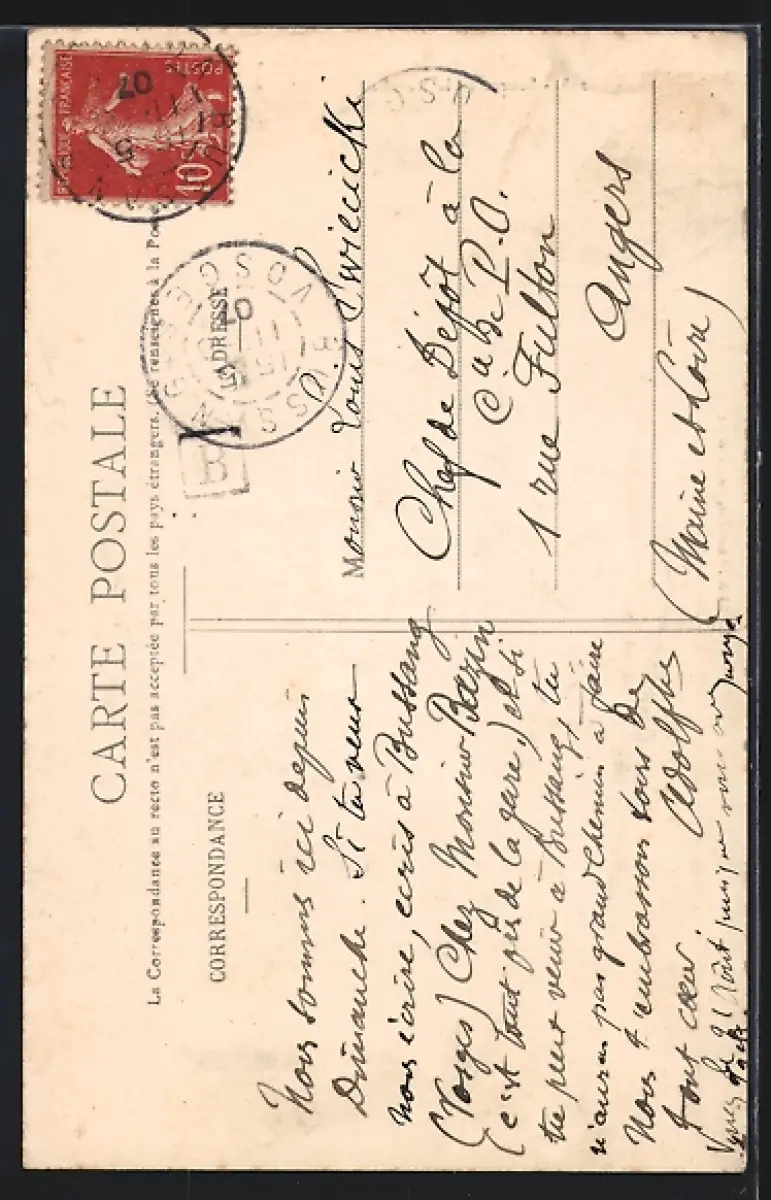 CARTE POSTALE
La Correspondance au recto n'est pas acceptée par tous les pays étrangers. (Se renseigner à la Poste
CORRESPONDANCE
ADRESSE
Nous sommes ici depuis
Dimanche. Si tu veux
nous écrire, écris à Bussang
(Vosges) Chez Monsieur Bazin
(c'est tout près de la gare) et si
tu peux venir à Bussang, tu
n'auras pas grand chemin à faire
Nous t'embrassons tous de
tout cœur. Adolphe
Monsieur Louis
Chef de Dépôt à la
Cie du P.O.
1 rue Fulton
Angers
(Maine et Loire)
RÉPUBLIQUE FRANÇAISE
POSTES
10
BUSSANG
VOSGES
15
11
07
B